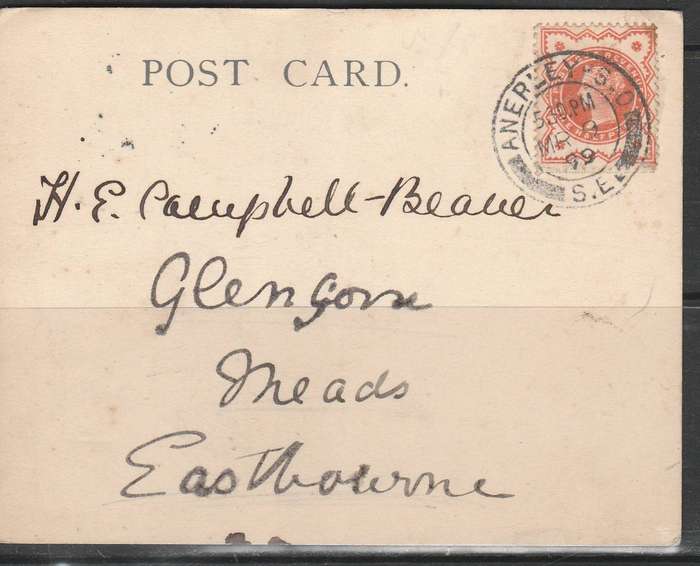 POST CARD.
ANERLEY. S.O.
5.30 PM
MR 9
99
S.E.
H. E. Campbell-Beaver
Glengorn
Meads
Eastbourne